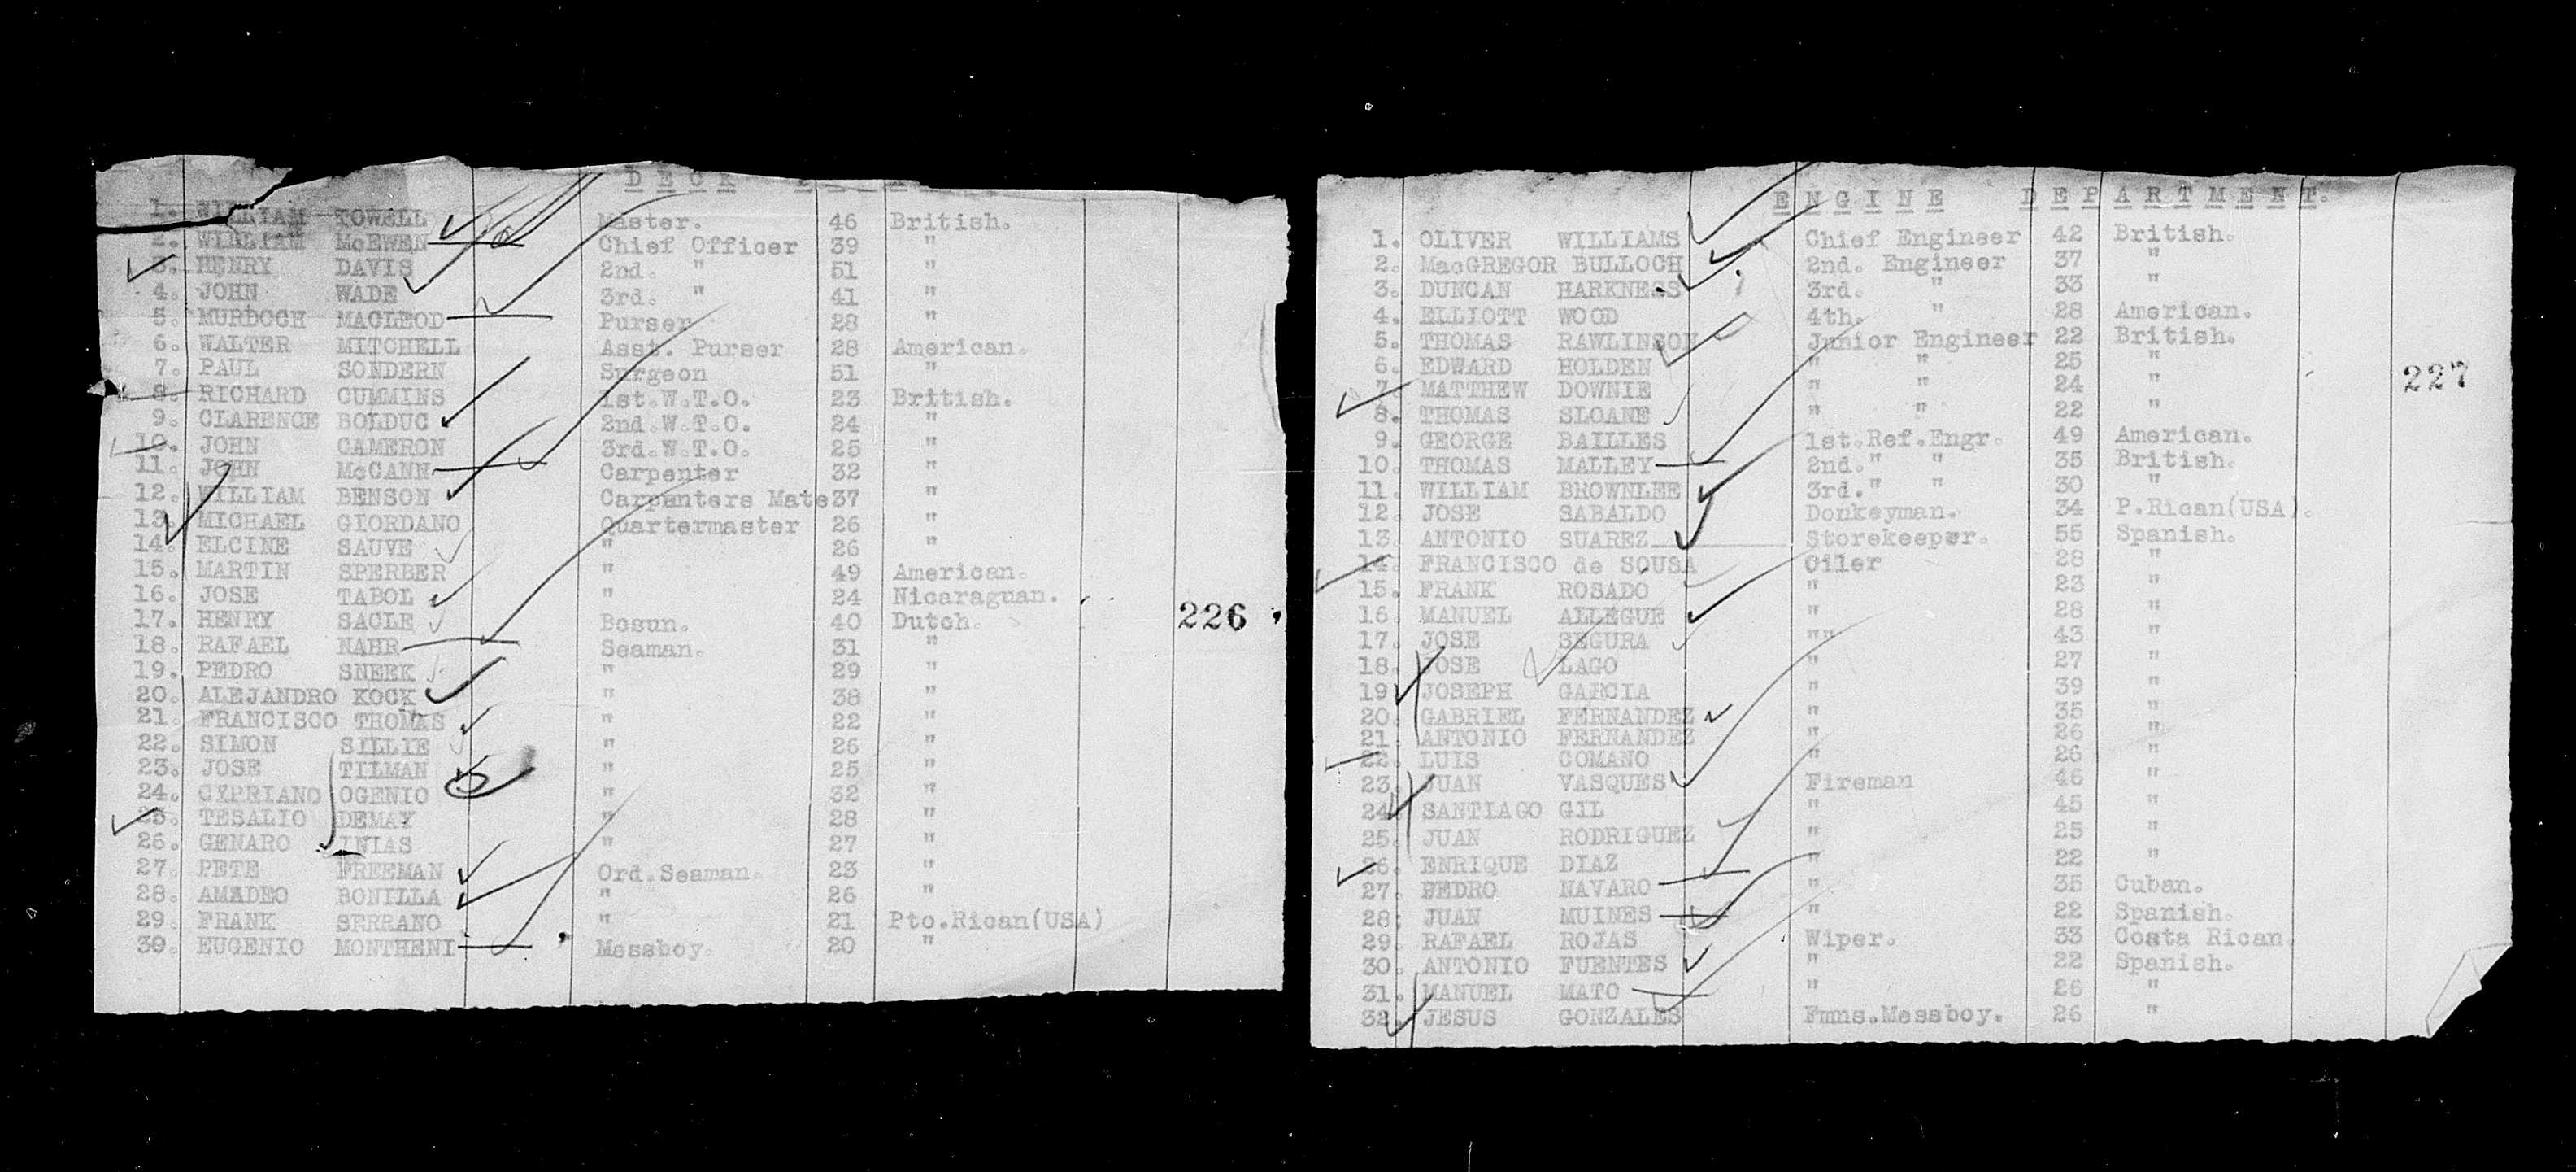 DECK
1. WILLIAM TOWELL Master. 46 British.
2. WILLIAM McEWEN Chief Officer 39 "
3. HENRY DAVIS 2nd. " 51 "
4. JOHN WADE 3rd. " 41 "
5. MURDOCH MACLEOD Purser 28 "
6. WALTER MITCHELL Asst. Purser 28 American.
7. PAUL SONDERN Surgeon 51 "
8. RICHARD CUMMINS 1st.W.T.O. 23 British.
9. CLARENCE BOLDUC 2nd.W.T.O. 24 "
10. JOHN CAMERON 3rd.W.T.O. 25 "
11. JOHN McCANN Carpenter 32 "
12. WILLIAM BENSON Carpenters Mate 37 "
13. MICHAEL GIORDANO Quartermaster 26 "
14. ELCINE SAUVE " 26 "
15. MARTIN SPERBER " 49 American.
16. JOSE TABOL " 24 Nicaraguan.
17. HENRY SACLE Bosun. 40 Dutch.
18. RAFAEL NAHR Seaman. 31 "
19. PEDRO SNEEK " 29 "
20. ALEJANDRO KOCK " 38 "
21. FRANCISCO THOMAS " 22 "
22. SIMON SILLIE " 26 "
23. JOSE TILMAN " 25 "
24. CIPRIANO OGENIO " 32 "
25. TESALIO DEMAY " 28 "
26. GENARO INIAS " 27 "
27. PETE FREEMAN Ord.Seaman. 23 "
28. AMADEO BONILLA " 26 "
29. FRANK SERRANO " 21 Pto.Rican(USA)
30. EUGENIO MONTHENI Messboy. 20 "
226
ENGINE DEPARTMENT.
1. OLIVER WILLIAMS Chief Engineer 42 British.
2. MacGREGOR BULLOCH 2nd. Engineer 37 "
3. DUNCAN HARKNESS 3rd. " 33 "
4. ELLIOTT WOOD 4th. " 28 American.
5. THOMAS RAWLINSON Junior Engineer 22 British.
6. EDWARD HOLDEN " " 25 "
7. MATTHEW DOWNIE " " 24 "
8. THOMAS SLOANE " " 22 "
9. GEORGE BAILLES 1st.Ref.Engr. 49 American.
10. THOMAS MALLEY 2nd." " 35 British.
11. WILLIAM BROWNLEE 3rd." " 30 "
12. JOSE SABALDO Donkeyman. 34 P.Rican(USA).
13. ANTONIO SUAREZ Storekeeper. 55 Spanish.
14. FRANCISCO de SOUSA Oiler 28 "
15. FRANK ROSADO " 23 "
16. MANUEL ALLEGUE " 28 "
17. JOSE SEGURA "" 43 "
18. JOSE LAGO " 27 "
19. JOSEPH GARCIA " 39 "
20. GABRIEL FERNANDEZ " 35 "
21. ANTONIO FERNANDEZ " 26 "
22. LUIS COMANO " 26 "
23. JUAN VASQUES Fireman 46 "
24. SANTIAGO GIL " 45 "
25. JUAN RODRIGUEZ " 25 "
26. ENRIQUE DIAZ " 22 "
27. PEDRO NAVARO " 35 Cuban.
28. JUAN MUINES " 22 Spanish.
29. RAFAEL ROJAS Wiper. 33 Costa Rican
30. ANTONIO FUENTES " 22 Spanish.
31. MANUEL MATO " 26 "
32. JESUS GONZALES Fmns.Messboy. 26 "
227